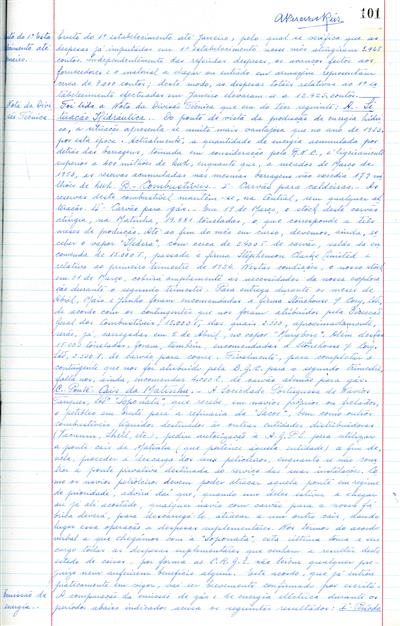 101
Conta do 1º esta-
belecimento até
Janeiro.
Conta do 1º estabelecimento até Janeiro, pelo qual se verifica que as
despesas já imputadas em 1º estabelecimento nesse mês atingiram
contos. Independentemente das referidas despesas, os avanços feitos aos
fornecedores e o material a chegar ou entrado em armazem representam
cerca de contos; deste modo, as despesas totais relativas ao 1º es-
tabelecimento efectuadas em Janeiro elevaram-se a contos.
Nota da Divi-
são Técnica.
Foi lida a Nota da Divisão Técnica que era do teor seguinte: A. Si-
tuação Hidráulica. Do ponto de vista da produção de energia hidráu-
lica, a situação apresenta-se muito mais vantajosa que no ano de 1953,
por esta época. Actualmente, a quantidade de energia acumulada por
detrás das barragens, tomada em consideração pelo é ligeiramente
superior a 400 milhões de kwh, enquanto que, a meados de Março de
1953, as reservas acumuladas nas mesmas barragens não excedia 173 mi-
lhões de kwh. B. Combustíveis. Carvão para caldeiras. As
reservas deste combustível mantêm-se, na Central, sem qualquer al-
teração. Carvão para gás. Em de Março, o stock deste carvão
atingia, na Matinha, toneladas, o que corresponde a três
meses de produção. Até ao fim do mês em curso, devemos, ainda, re-
ceber o vapor com cerca de 2.400 T. de carvão, saldo da en-
comenda de 15.000 T., passada à firma Stephenson Clarke Limited e
relativa ao primeiro trimestre de 1954. Nestas condições, o nosso stock
em 31 de Março, cobrirá amplamente as necessidades da nossa explora-
ção durante o segundo trimestre. Para entrega durante os meses de
Abril, Maio e Junho foram encomendadas à firma
de acordo com os contingentes que nos foram atribuídos pela Direcção
Geral dos Combustíveis, 15.000 T., das quais aproximadamente,
serão, já, carregadas em 2 de Abril, no vapor Além destas
15.000 toneladas, foram, também, encomendadas a
2.500 T. de carvão para coque. Finalmente, para completar o
contingente que nos foi atribuído pela D.G.C. para o segundo trimestre,
falta-nos, ainda, encomendar 4.000 T. de carvão alemão para gás.
C. Ponte-Cais da Matinha. A Sociedade Portuguesa de Navios
Tanques, Lda "Soponata" que recebe, em navios próprios ou fretados,
o petróleo em bruto para a refinaria da "Sacor", bem como outros
combustíveis líquidos destinados às outras entidades distribuidoras
(Vacuum, Shell, etc.), pediu autorização à A.G.P.L. para utilizar
a ponte cais da Matinha (que pertence àquela entidade) a fim de,
ali, proceder à descarga dos seus petroleiros, enquanto se não cons-
troi a ponte privativa destinada ao serviço das suas instalações. Co-
mo os navios petroleiros devem poder atracar àquela ponte em regime
de prioridade, advirá daí que, quando um deles estiver a chegar
ou já ali acostado, qualquer navio com carvão para a nossa fá-
brica deverá, para descarregar, ter de atracar a um outro cais, dando
lugar essa operação a despesas suplementares. Nos termos do acordo
verbal a que chegámos com a "Soponata", esta última toma a seu
cargo todas as despesas suplementares que venham a resultar deste
estado de coisas, por forma a que as C.R.G.E. não tenham qualquer pre-
juízo nem aufiram benefício algum. Este acordo, que já entrou
praticamente em vigor, vai ser brevemente confirmado por escrito.
Emissão de
energia.
A comparação da emissão de gás e de energia eléctrica durante os
períodos abaixo indicados acusa os seguintes resultados: 1º Período